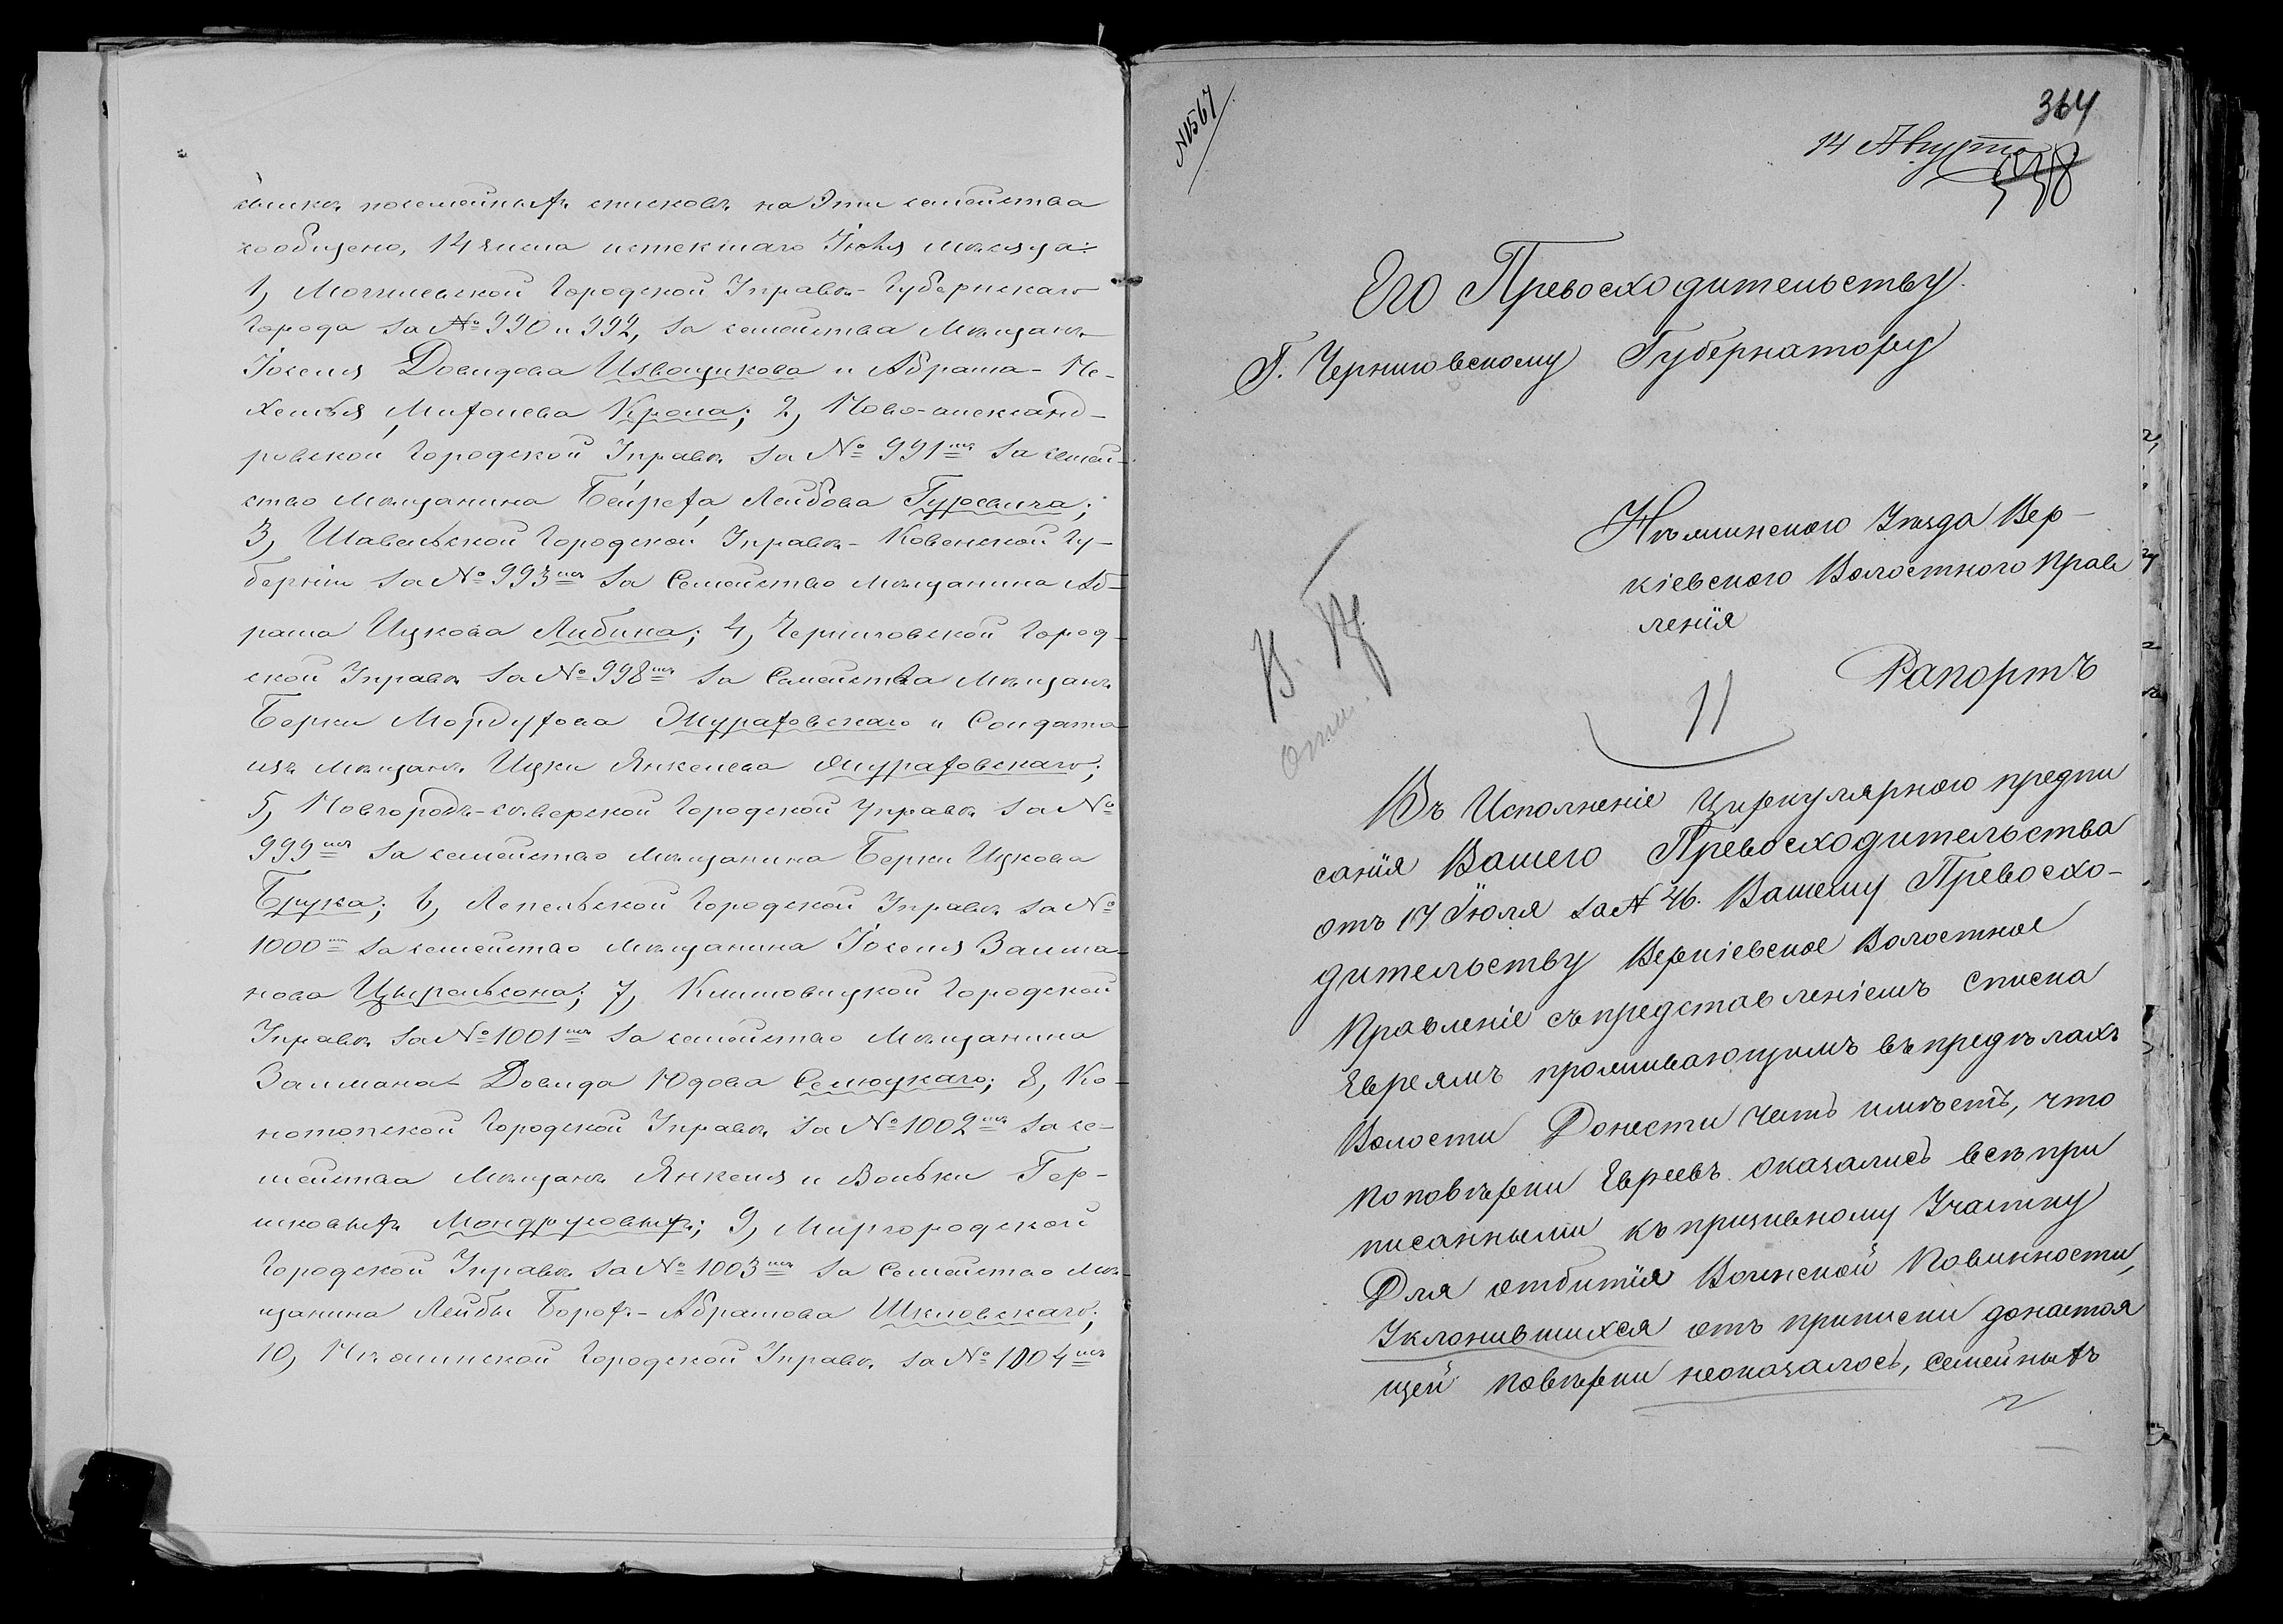 сылкѣ посемейныхъ списковъ на эти семейства
сообщено, 14 числа истекшаго Іюля мѣсяца:
1, Могилевской Городской Управѣ Губернскаго
Города за № 990 и 992, за семейства мѣщанъ
Іоселя Довидова Извощикова и Абрама-Ме-
хеля Мифонева Крола; 2, Ново-александ-
ровской Городской Управѣ за № 991мъ за семей-
ство мѣщанина Бейреха Лейбова Гуревича;
3, Шавельской Городской Управѣ Ковенской Гу-
берніи за № 993мъ за Семейство мѣщанина Аб-
рама Ицкова Либина; 4, Черниговской Город-
ской Управѣ за № 998мъ за Семейства мѣщанъ
Берки Мордухова Жураховскаго и Солдата
изъ мѣщанъ Ицки Янкелева Жураховскаго;
5, Новгородъ-сѣверской Городской Управѣ за №
999мъ за семейство мѣщанина Берки Ицкова
Брука; 6, Лепельской Городской Управѣ за №
1000мъ за семейство мѣщанина Іоселя Залма-
нова Цырельсона; 7, Климовицкой Городской
Управѣ за № 1001мъ за семейство мѣщанина
Залмана-Довида Юдова Селюцкаго; 8, Ко-
нотопской Городской Управѣ за № 1002мъ за се-
мейства мѣщанъ Янкеля и Вольки Гер-
шковыхъ Мондрусовыхъ; 9, Миргородской
Городской Управѣ за № 1003мъ за Семейство мѣ-
щанина Лейбы Борох-Абрамова Шкловскаго;
10, Нѣжинской Городской Управѣ за № 1004мъ
№1567
364
14 Августа
538
Его Превосходительству
Г. Черниговскому Губернатору
Нѣжинского Уѣзда Вер-
кіевского Волостного Прав
ленія
Рапортъ
11
Въ Исполненіе Циркулярного предпи
санія Вашего Превосходительства
отъ 17 Іюля за № 46. Вашему Превосхо-
дительству Веркіевское Волостное
Правленіе съ представленіемъ списка
Евреямъ проживающимъ въ предѣлахъ
Волости Донести честь имѣетъ, что
по повѣрки Евреевъ оказались всѣ при
писанными къ призивному Участку
Для отбитія Воинской Повинности,
Уклонившихся отъ приписки донастоя
щей повѣрки неоказалось, Семейныхъ